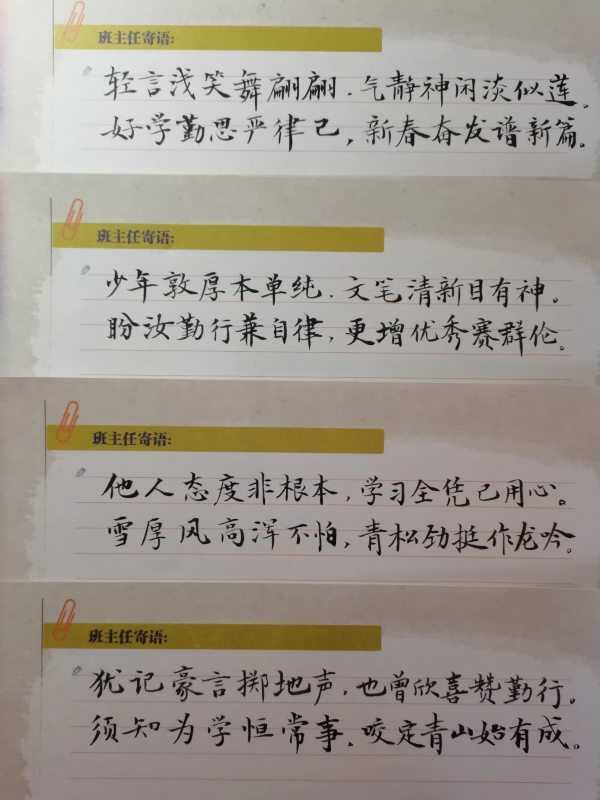 班主任寄语:
轻言浅笑舞翩翩.气静神闲淡似莲。
好学勤思严律己,新春奋发谱新篇。
班主任寄语:
少年敦厚本单纯.文笔清新目有神。
盼汝勤行兼自律,更增优秀赛群伦。
班主任寄语:
他人态度非根本,学习全凭己用心。
雪厚风高浑不怕,青松劲挺作龙吟。
班主任寄语:
犹记豪言掷地声,也曾欣喜赞勤行。
须知为学恒常事.咬定青山始有成。